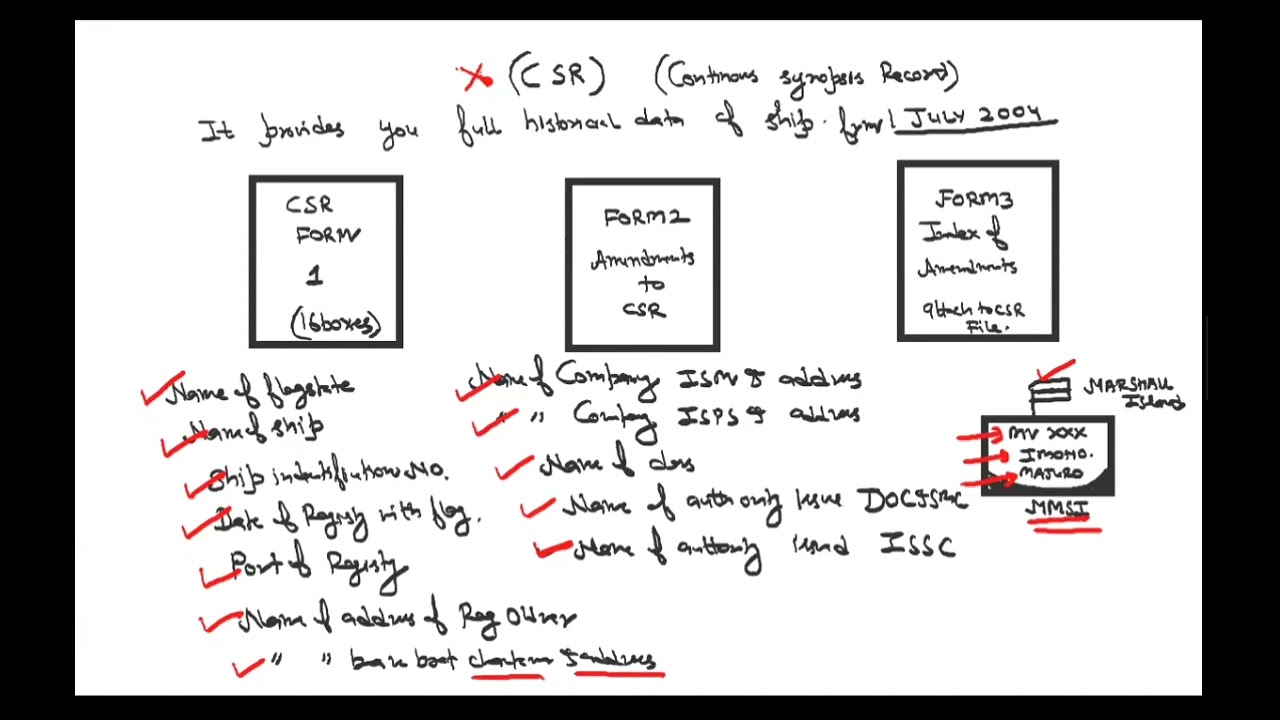 (CSR) (Continous synopsis Record)
It provides you full historical data of ship. from 1 JULY 2004
CSR
FORM
1
(16 boxes)
FORM 2
Amendments
to
CSR
FORM 3
Index of
Amendments
attach to CSR
File.
Name of flagstate
Name of ship
Ship indentification NO.
Date of Registy with flag.
Port of Registry
Name & address of Reg Owner
" " bare boat charterer & address
Name of Company ISM & address
" " Company ISPS & address
Name of class
Name of authority issue DOC, SMC
Name of authority issued ISSC
MARSHALL
Island
MV XXX
IMO NO.
MAJURO
MMSI